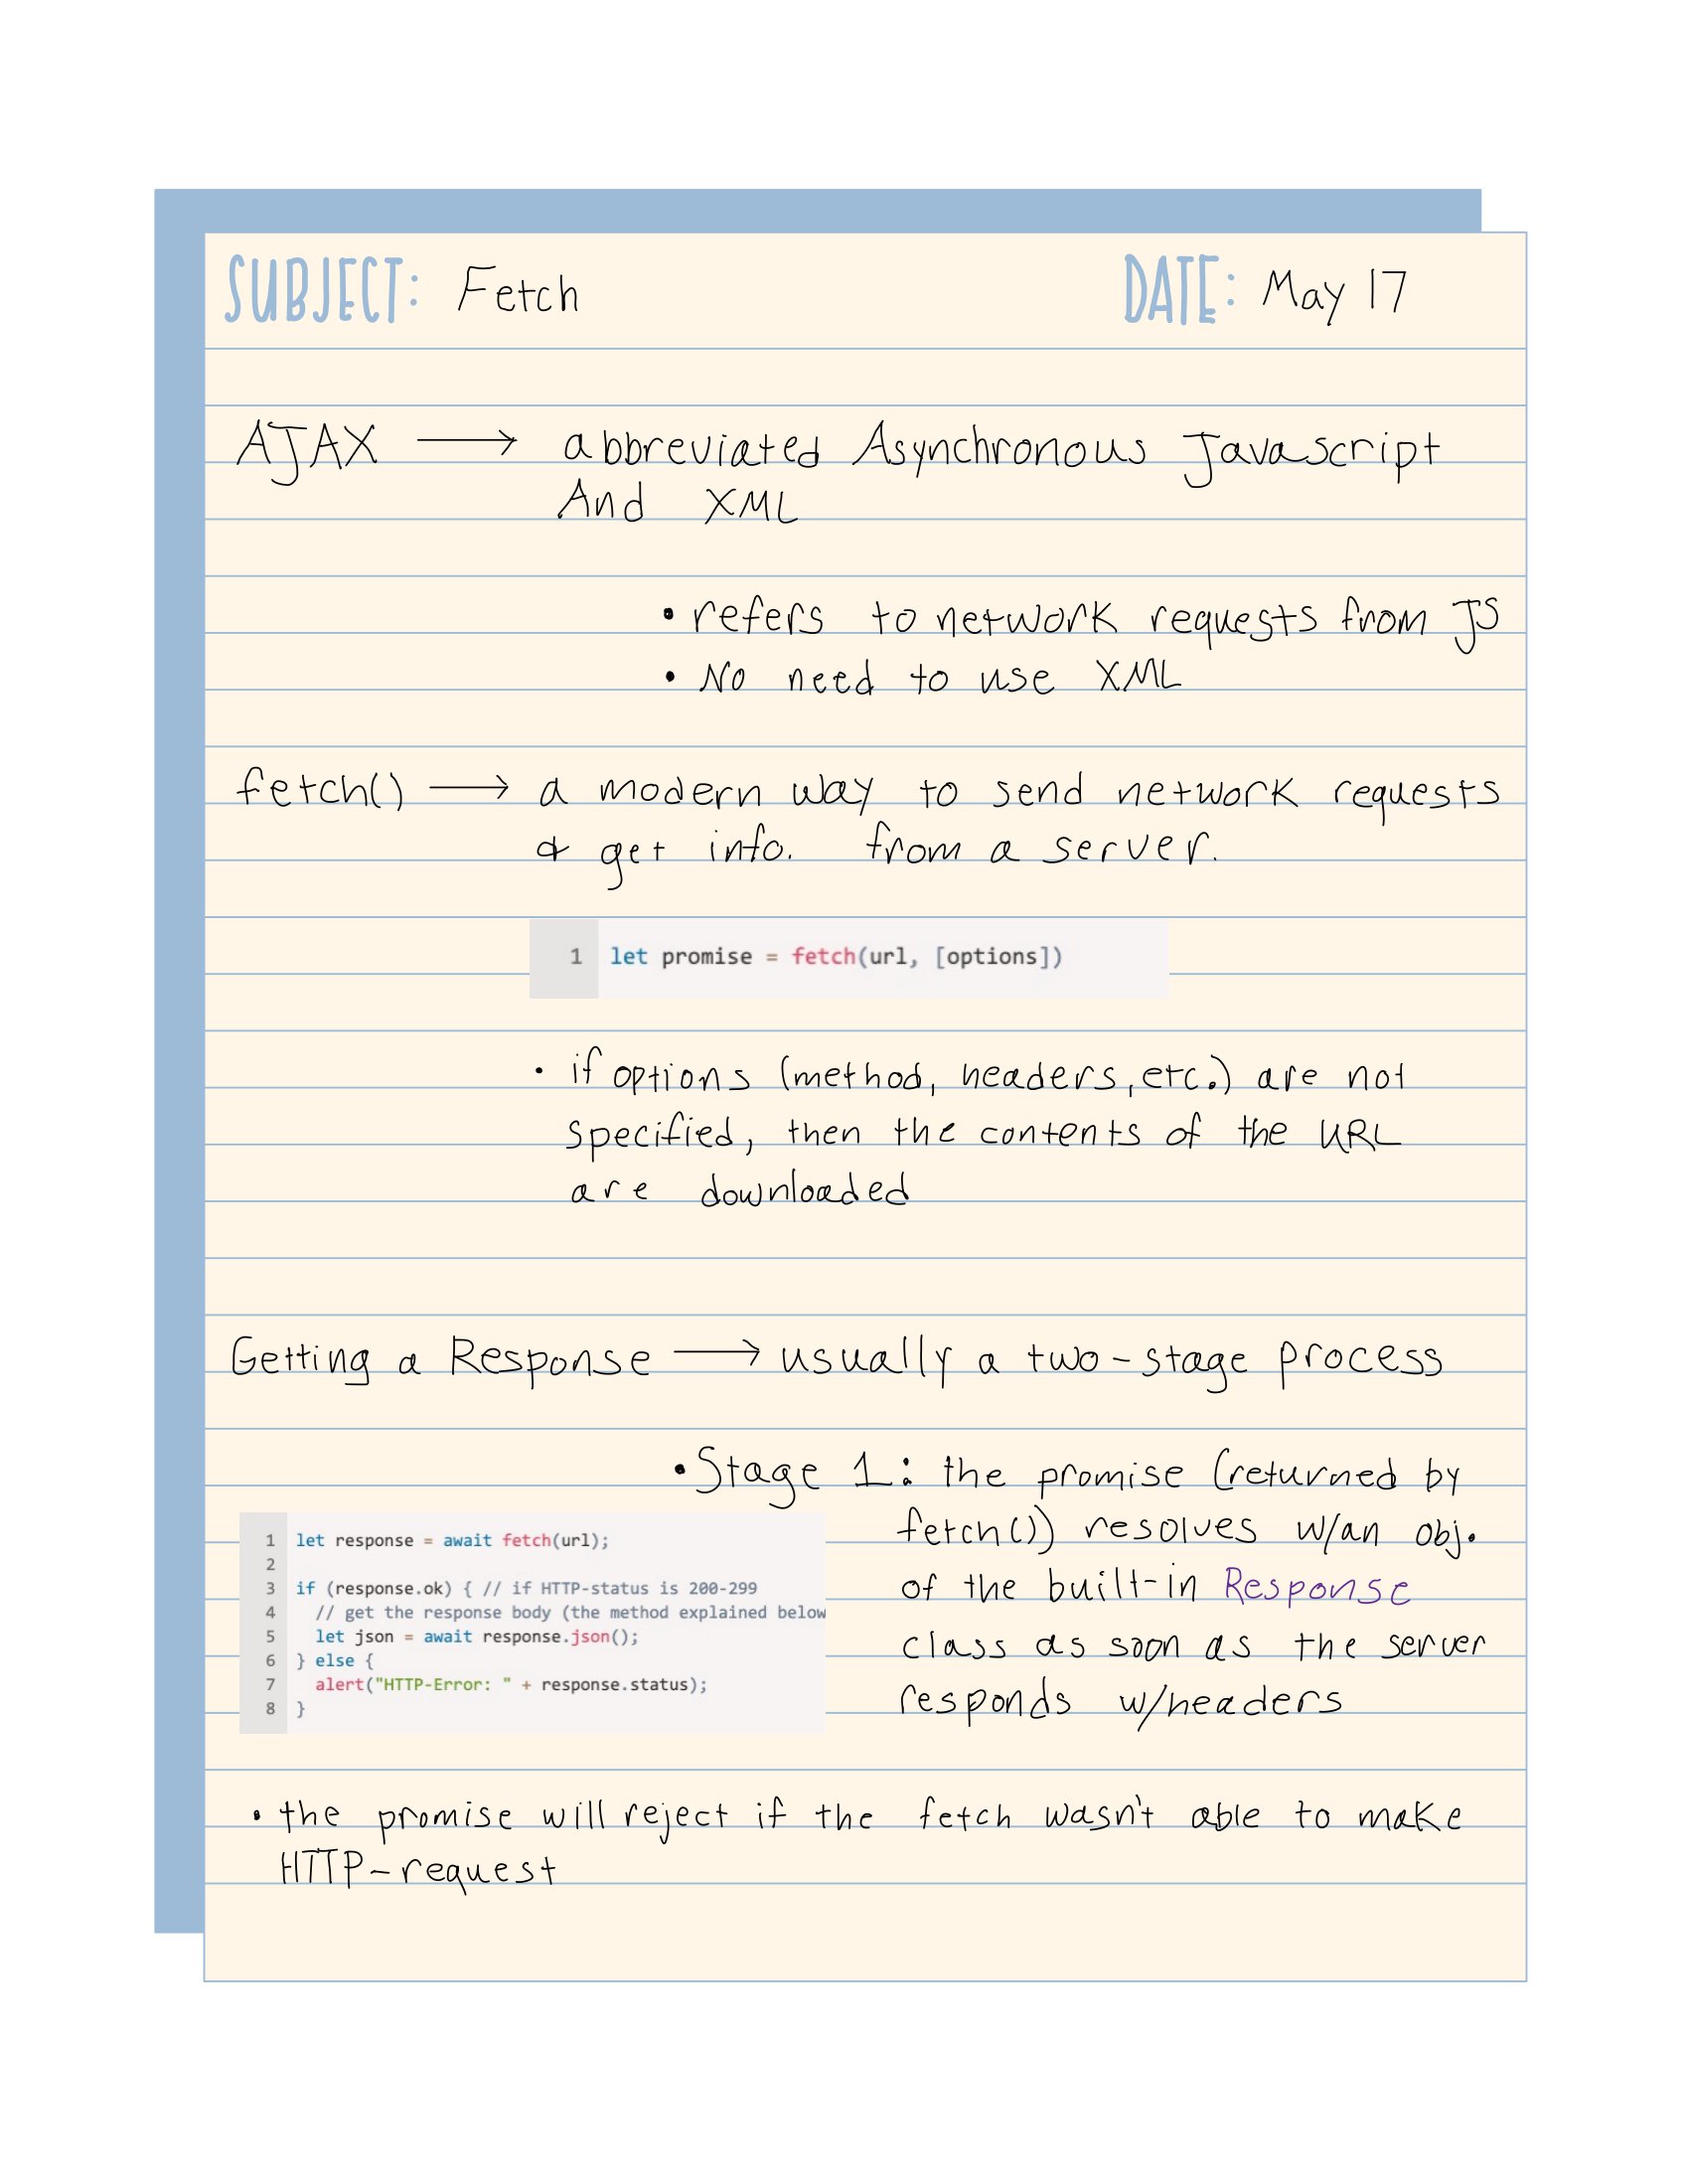 SUBJECT: Fetch DATE: May 17
AJAX → abbreviated Asynchronous Javascript
And XML
• refers to network requests from JS
• No need to use XML
fetch() → a modern way to send network requests
& get info. from a server.
1 let promise = fetch(url, [options])
• if options (method, headers, etc.) are not
specified, then the contents of the URL
are downloaded
Getting a Response → usually a two-stage process
• Stage 1: the promise (returned by
fetch()) resolves w/an obj.
of the built-in Response
class as soon as the server
responds w/headers
1 let response = await fetch(url);
2
3 if (response.ok) { // if HTTP-status is 200-299
4 // get the response body (the method explained below
5 let json = await response.json();
6 } else {
7 alert("HTTP-Error: " + response.status);
8 }
• the promise will reject if the fetch wasn't able to make
HTTP-request